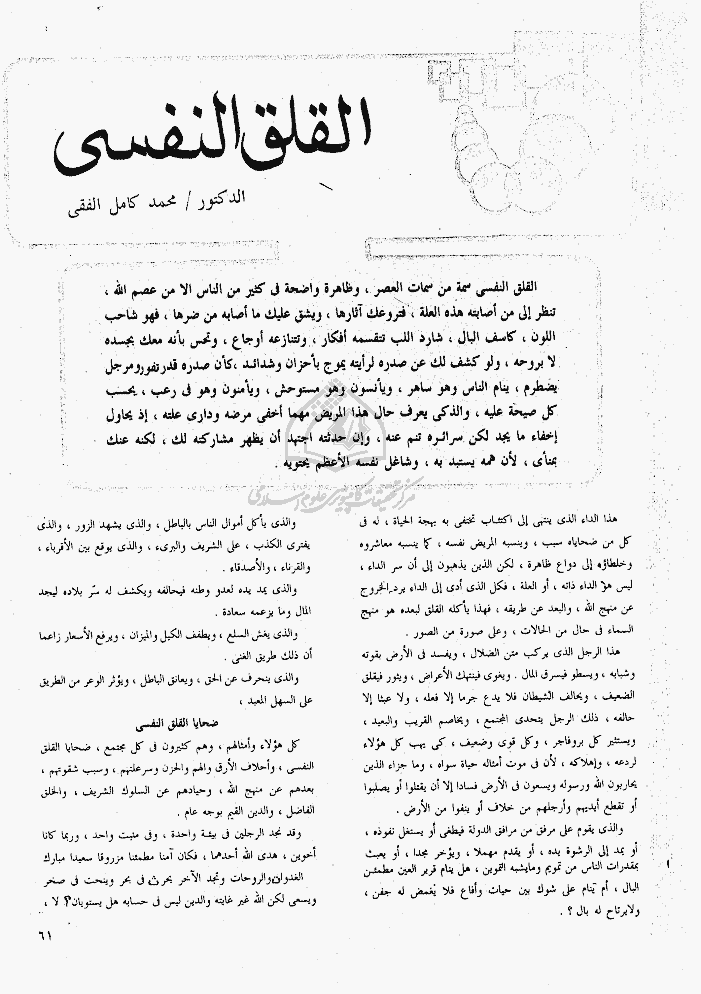 القلق النفسى
الدكتور / محمد كامل الفقى
القلق النفسى سمة من سمات العصر ، وظاهرة واضحة فى كثير من الناس الا من عصم الله ،
تنظر إلى من أصابته هذه العلة ، فتروعك آثارها ، ويشق عليك ما أصابه من ضرها ، فهو شاحب
اللون ، كاسف البال ، شارد اللب تتقسمه أفكار ، وتتنازعه أوجاع ، وتحس بأنه معك بجسده
لا بروحه ، ولو كشف لك عن صدره لرأيته يموج بأحزان وشدائد ، كأن صدره قدر تفور ومرجل
يضطرم ، ينام الناس وهو ساهر ، ويأنسون وهو مستوحش ، ويأمنون وهو فى رعب ، يحسب
كل صيحة عليه ، والذكى يعرف حال هذا المريض مهما أخفى مرضه ودارى علته ، إذ يحاول
إخفاء ما يجد لكن سرائره تنم عنه ، وإن حدثته اجتهد أن يظهر مشاركته لك ، لكنه عنك
بمنأى ، لأن همه يستبد به ، وشاغل نفسه الأعظم يحتويه .
هذا الداء الذى ينتهى إلى اكتئاب تختفى به بهجة الحياة ، له فى
كل من ضحاياه سبب ، وينسبه المريض نفسه ، كما ينسبه معاشروه
وخلطاؤه إلى دواع ظاهرة ، لكن الذين يذهبون إلى أن سر الداء ،
ليس هو الداء ذاته ، أو العلة ، فكل الذى أدى إلى الداء يرد الخروج
عن منهج الله ، والبعد عن طريقه ، فهذا يأكله القلق لبعده هو منهج
السماء فى حال من الحالات ، وعلى صورة من الصور .
هذا الرجل الذى يركب متن الضلال ، ويفسد فى الأرض بقوته
وشبابه ، ويسطو فيسرق المال . ويغوى فينتهك الأعراض ، ويثور فيقلق
الضعيف ، ويحالف الشيطان فلا يدع جرما إلا فعله ، ولا عبثا إلا
حالفه ، ذلك الرجل يتحدى المجتمع ، ويخاصم القريب والبعيد ،
ويستثير كل بر وفاجر ، وكل قوى وضعيف ، كى يهب كل هؤلاء
لردعه ، وإهلاكه ، لأن فى موت أمثاله حياة سواه ، وما جزاء الذين
يحاربون الله ورسوله ويسعون فى الأرض فسادا إلا أن يقتلوا أو يصلبوا
أو تقطع أيديهم وأرجلهم من خلاف أو ينفوا من الأرض .
والذى يقوم على مرفق من مرافق الدولة فيطغى أو يستغل نفوذه ،
أو يمد إلى الرشوة يده ، أو يقدم مهملا ، ويؤخر مجدا ، أو يعبث
بمقدرات الناس من تموين ومايشبه التموين ، هل ينام قرير العين مطمئن
البال ، أم ينام على شوك بين حيات وأفاع فلا يُغمض له جفن ،
ولايرتاح له بال ؟ .
والذى يأكل أموال الناس بالباطل ، والذى يشهد الزور ، والذى
يفترى الكذب ، على الشريف والبرىء ، والذى يوقع بين الأقرباء ،
والقرناء ، والأصدقاء .
والذى يمد يده لعدو وطنه فيحالفه ويكشف له سرّ بلاده ليجد
المال وما يزعمه سعادة .
والذى يغش السلع ، ويطفف الكيل والميزان ، ويرفع الأسعار زاعما
أن ذلك طريق الغنى .
والذى ينحرف عن الحق ، ويعانق الباطل ، ويؤثر الوعر من الطريق
على السهل المعبد ،
ضحايا القلق النفسى
كل هؤلاء وأمثالهم ، وهم كثيرون فى كل مجتمع ، ضحايا القلق
النفسى ، وأحلاف الأرق والهم والحزن وسر علتهم ، وسبب شقوتهم ،
بعدهم عن منهج الله ، وحيادهم عن السلوك الشريف ، والخلق
الفاضل ، والدين القيم بوجه عام .
وقد نجد الرجلين فى بيئة واحدة ، وفى منبت واحد ، وربما كانا
أخوين ، هدى الله أحدهما ، فكان آمنا مطمئنا مرزوقا سعيدا مبارك
الغدوات والروحات وتجد الآخر يحرث فى بحر وينحت فى صخر
ويسعى لكن الله غير غايته والدين ليس فى حسابه هل يستويان؟ لا ،
٦١